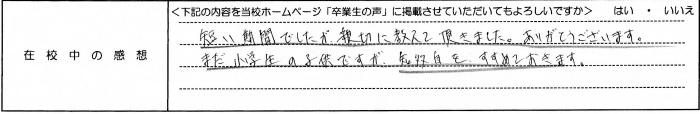 ＜下記の内容を当校ホームページ「卒業生の声」に掲載させていただいてもよろしいですか＞　はい ・ いいえ
在校中の感想
短い期間でしたが親切に教えて頂きました。ありがとうございます。
まだ小学生の子供ですが、をすすめておきます。